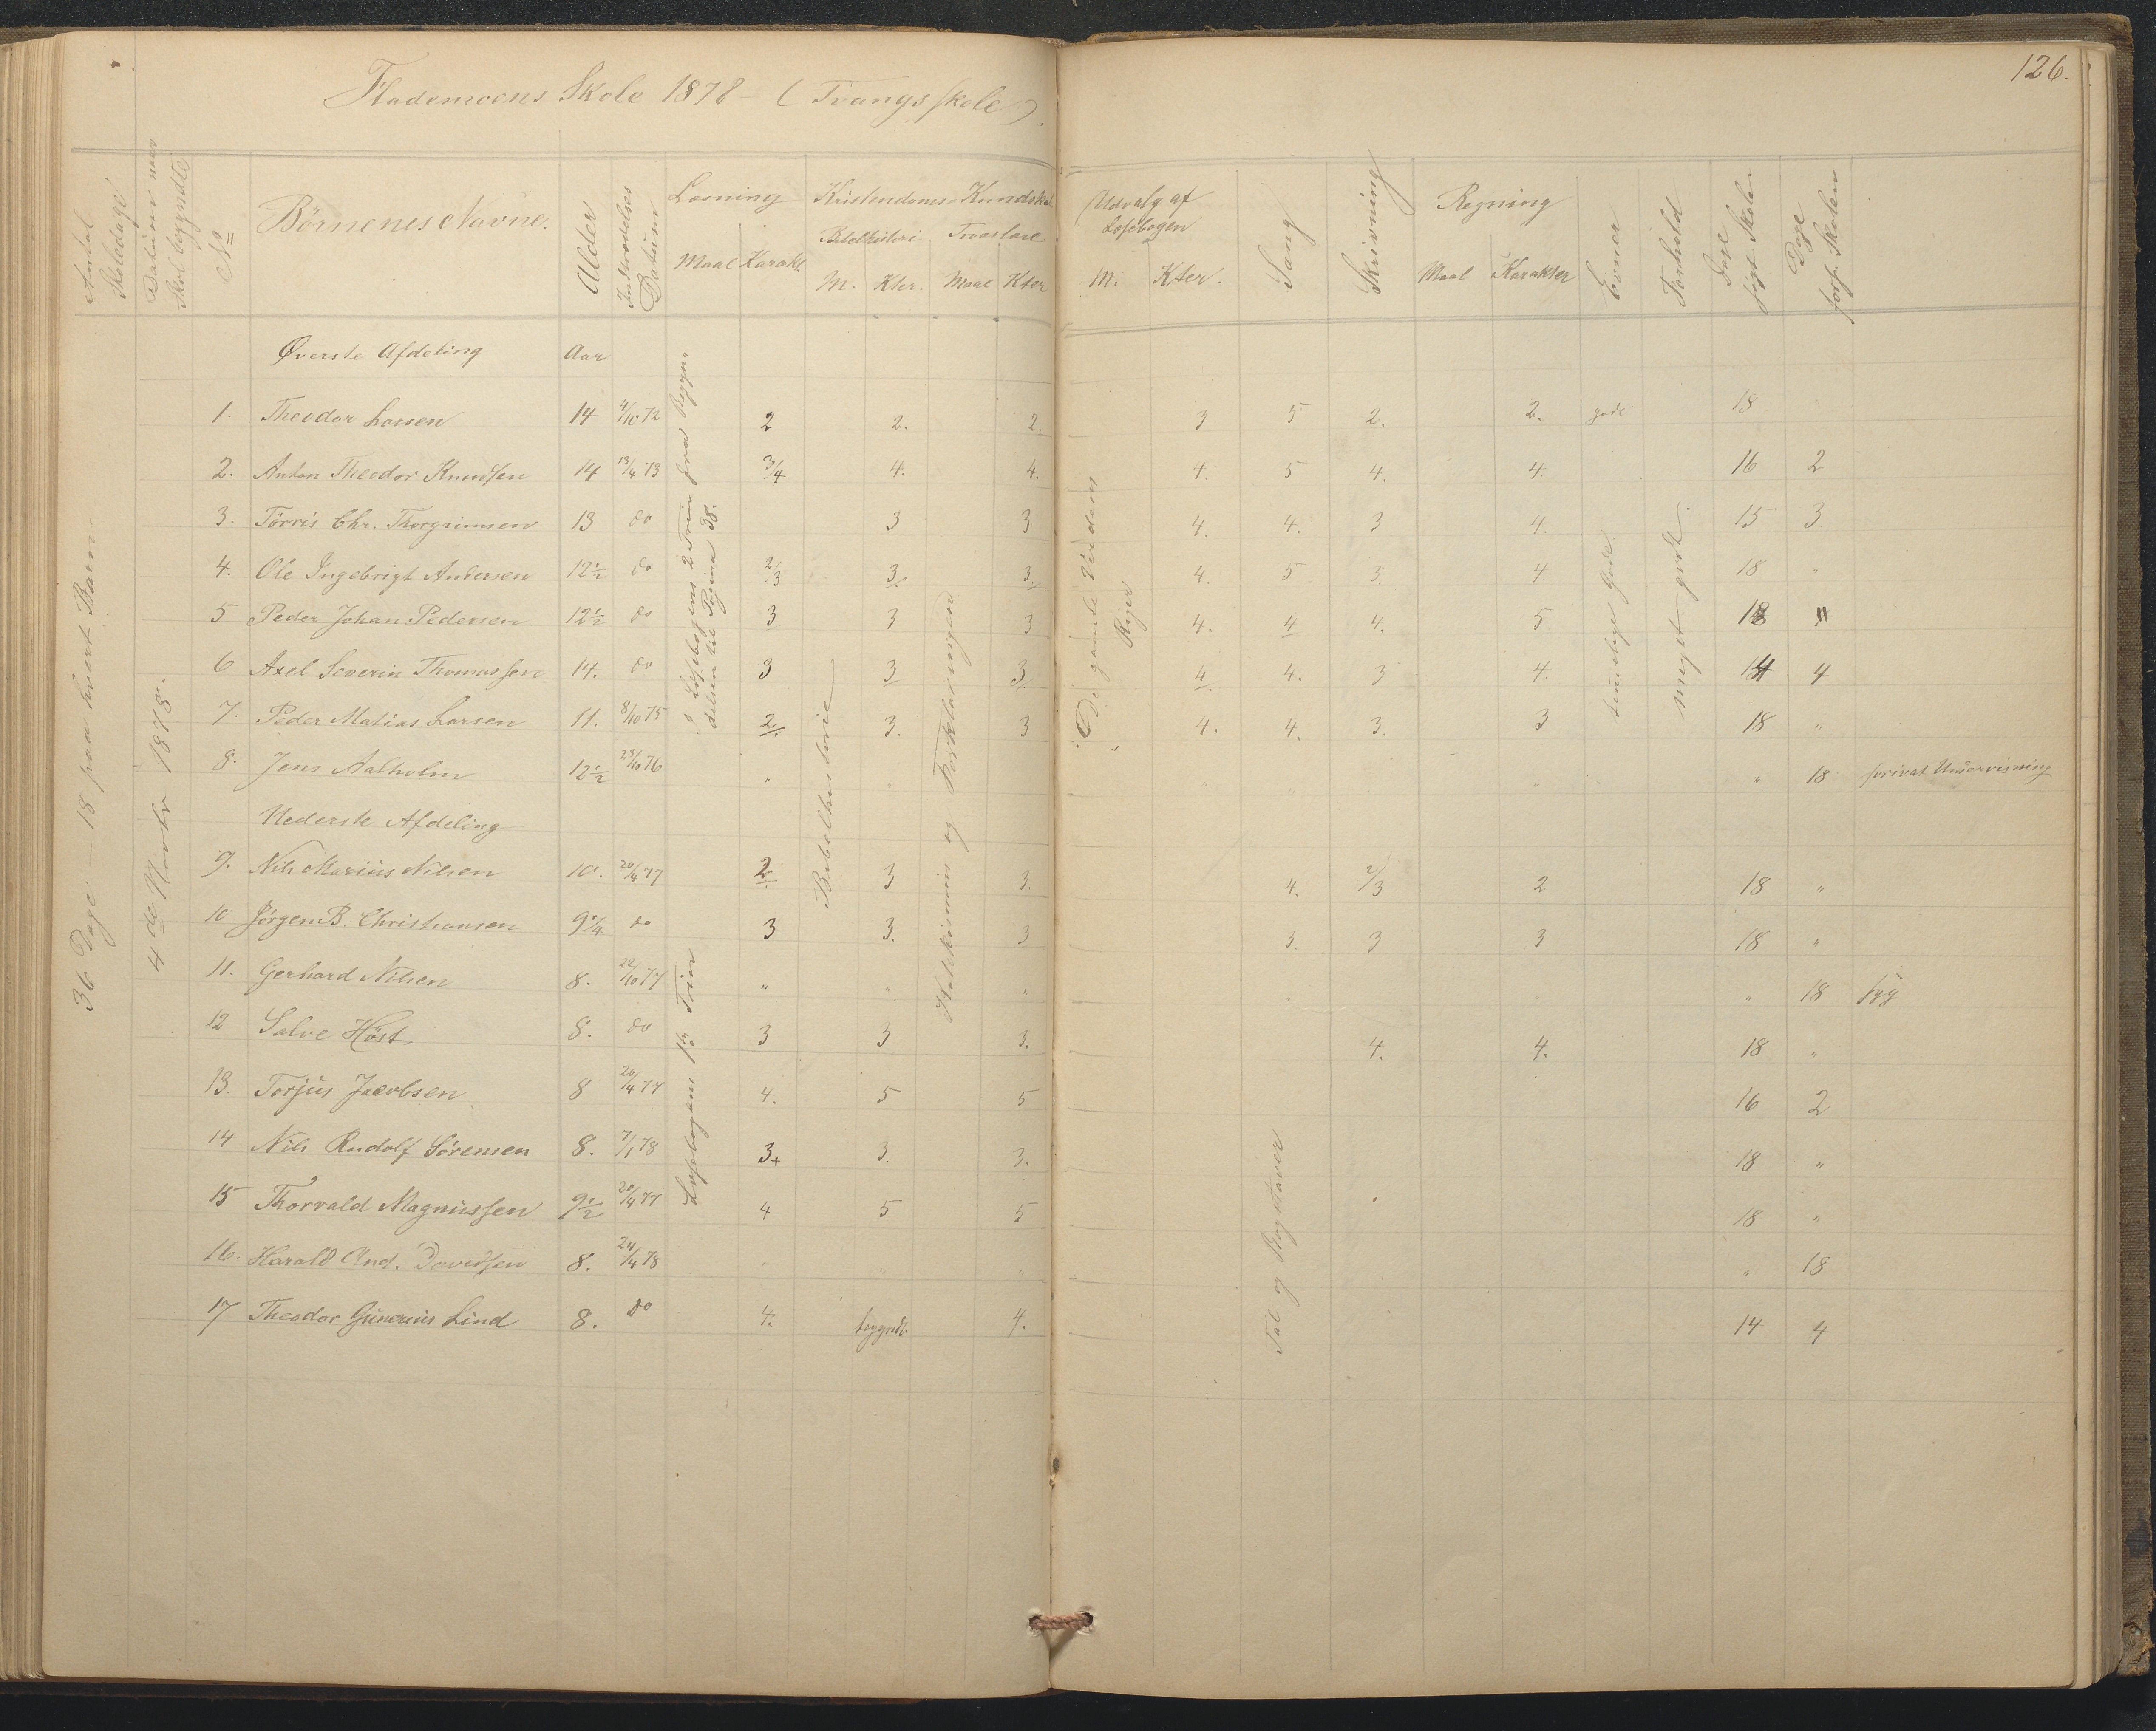 126.
Flademoens Skole 1878 – (Tvangsskole).
Antal Skoledage
Datum naar Skol. begyndte
No
Børnenes Navne.
Alder
Indtrædelses Datum
Læsning
Maal Karakt.
Kristendoms-Kundskab
Bibelhistori Troeslære
M. Kter. Maal Kter
Udvalg af Læsebogen
M. Kter.
Sang
Skrivning
Regning
Maal Karakter
Evner
Forhold
Dage
søgt Skolen
Dage
fors. Skolen
36 Dage – 18 paa hvert Barn
4de Novbr 1878.
Øverste Afdeling Aar
1. Theodor Larsen 14 4/10 72 2 2. 2. 3 5 2. 2. gode 18
2. Anton Theodor Knudsen 14 13/4 73 3/4 4. 4. 4. 5 4. 4. 16 2
3. Törris Chr. Thorgrimsen 13 do 3 3 4. 4. 3 4. 15 3.
4. Ole Ingebrigt Andersen 12½ do 2/3 3. 3. 4. 5 3. 4. 18 "
5 Peder Johan Pedersen 12½ do 3 3 3 4. 4 4. 5 18 "
6 Axel Severin Thomassen 14. do 3 3 3 4. 4. 3 4. 14 4
7. Peder Matias Larsen 11. 8/10 75 2. 3. 3 4. 4. 3. 3 18 "
8. Jens Aalholm 12½ 23/10 76 " " " " " " 18 privat Undervisning
Nederste Afdeling
9. Nils Marius Nilsen 10. 20/4 77 2. 3 3. 4. 2/3 2 18 "
10 Jörgen B. Christiansen 9¼ do 3 3. 3 3. 3 3 18 "
11. Gerhard Nilsen 8. 22/10 77 " " " " 18 syg
12 Salve Höst 8. do 3 3 3. 4. 4. 18 "
13. Torjus Jacobsen 8 20/4 77 4. 5 5 16 2
14 Nils Rudolf Sörensen 8. 7/1 78 3+ 3. 3. 18 "
15 Thorvald Magnussen 9½ 20/4 77 4 5 5 18 "
16. Harald And. Davidsen 8. 24/4 78 " " 18
17 Theodor Gunerius Lind 8. do 4. begyndt. 4. 14 4
Læsebogens 2 Trin fra Begyn-
delsen til Pagina 38.
Læsebogens 1ste Trin
Bibelhistorie
Katekismus og Forklaringen
De gamle Verdens
Riger
Tal og Bogstaver
temmelige gode
meget godt.